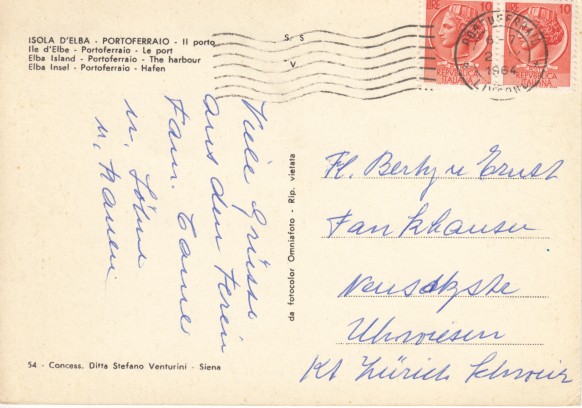 ISOLA D'ELBA - PORTOFERRAIO - Il porto
Ile d'Elbe - Portoferraio - Le port
Elba Island - Portoferraio - The harbour
Elba Insel - Portoferraio - Hafen
S. S
V.
10
10
REPVBBLICA
ITALIANA
1964
Viele Grüsse
aus den Ferien
Fam.
u. Söhne
u.
da fotocolor Omniafoto - Rip. vietata
Berty u Ernst
Fankhauser
Uhwiesen
Kt Zürich Schweiz
54 - Concess. Ditta Stefano Venturini - Siena